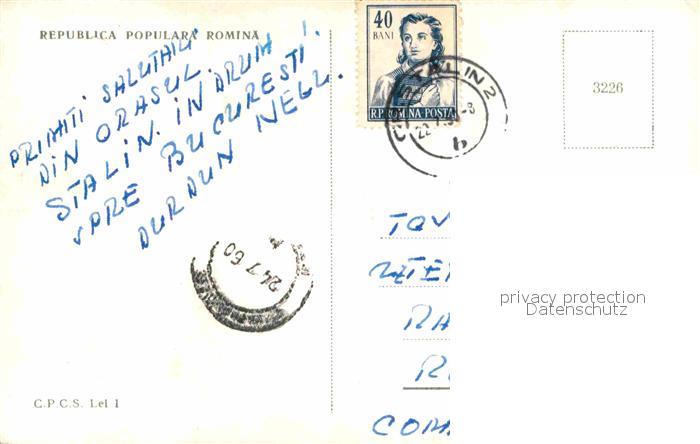 REPUBLICA POPULARĂ ROMÎNĂ
PRIMITI SALUTARI
DIN ORASUL
STALIN. IN DRUM
SPRE BUCURESTI.
DURDUN NEGU.
40
BANI
R.P. ROMINA POSTA
STALIN 2
b
24 7 60
3226
TOV
RA
COM
privacy protection
Datenschutz
C.P.C.S. Lei 1